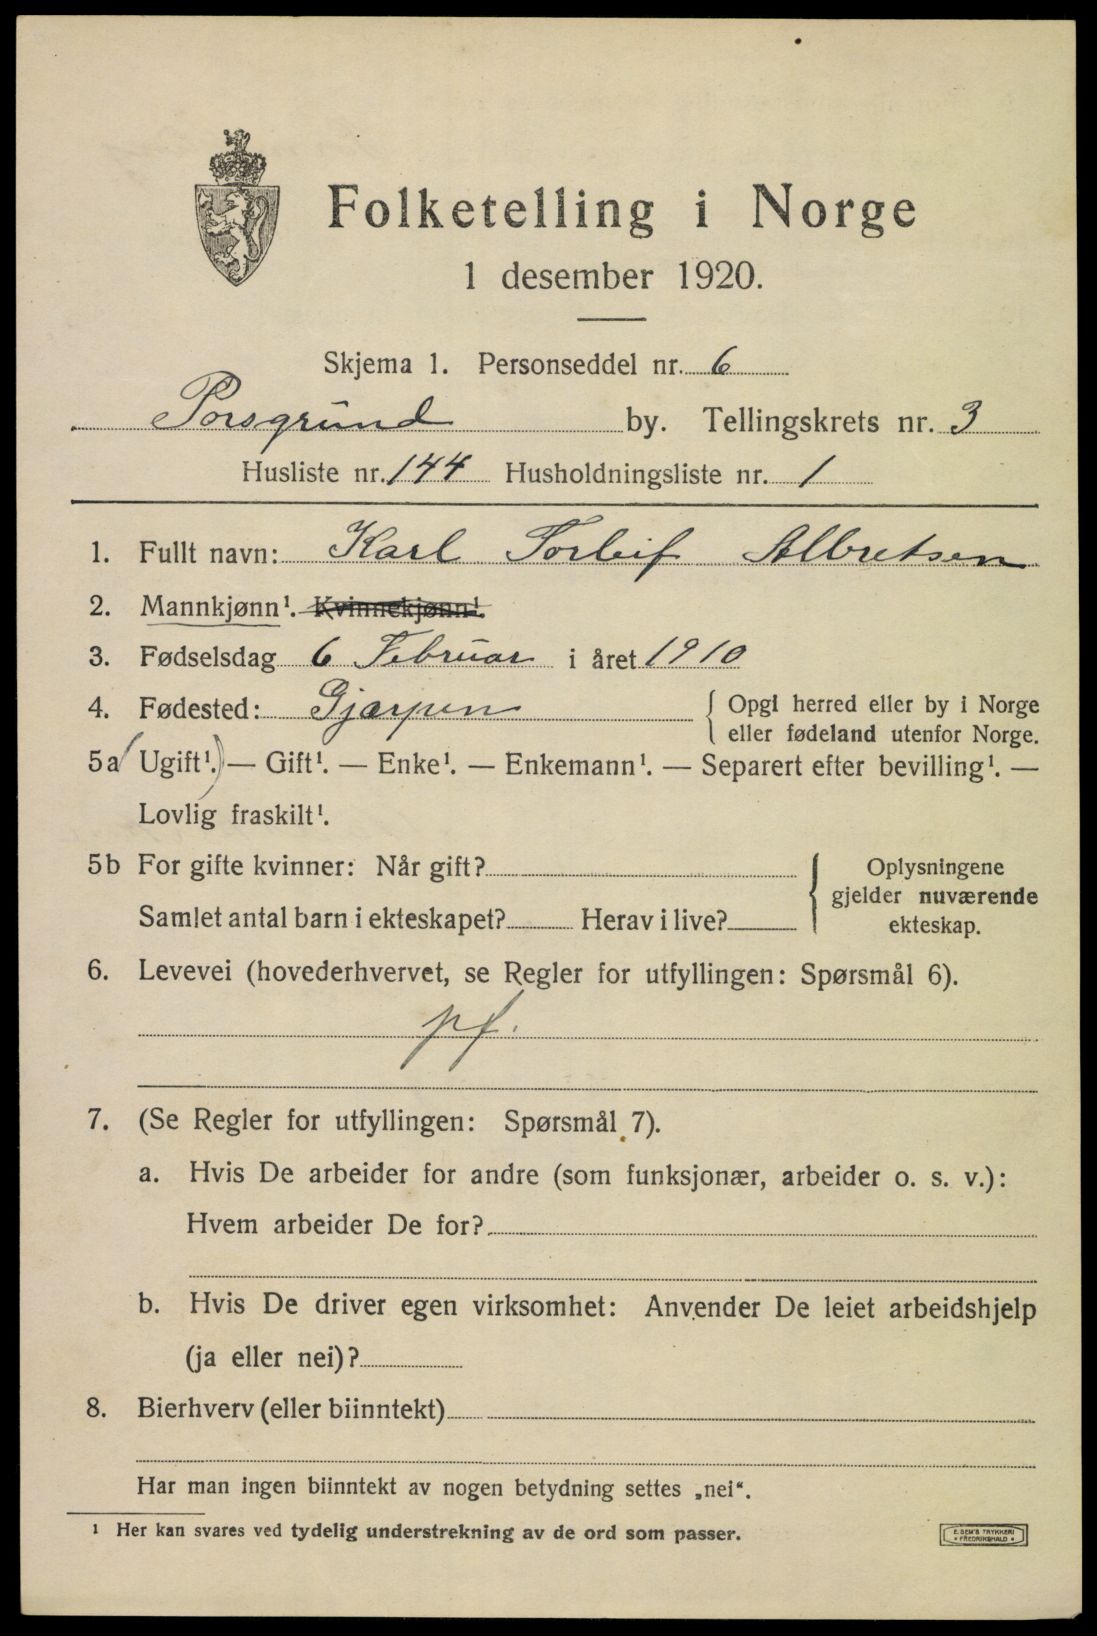 Folketelling i Norge
1 desember 1920.
Skjema 1. Personseddel nr. 6
Porsgrund by. Tellingskrets nr. 3
Husliste nr. 144 Husholdningsliste nr. 1
1. Fullt navn: Karl Torleif Albretsen
2. Mannkjønn¹. Kvinnekjønn¹.
3. Fødselsdag 6 Februar i året 1910
4. Fødested: Gjærpen { Opgi herred eller by i Norge
eller fødeland utenfor Norge.
5a (Ugift¹.) — Gift¹. — Enke¹. — Enkemann¹. — Separert efter bevilling¹. —
Lovlig fraskilt¹.
5b For gifte kvinner: Når gift? { Oplysningene
gjelder nuværende
Samlet antal barn i ekteskapet? Herav i live? ekteskap.
6. Levevei (hovederhvervet, se Regler for utfyllingen: Spørsmål 6).
pf.
7. (Se Regler for utfyllingen: Spørsmål 7).
a. Hvis De arbeider for andre (som funksjonær, arbeider o. s. v.):
Hvem arbeider De for?
b. Hvis De driver egen virksomhet: Anvender De leiet arbeidshjelp
(ja eller nei)?
8. Bierhverv (eller biinntekt)
Har man ingen biinntekt av nogen betydning settes „nei“.
¹ Her kan svares ved tydelig understrekning av de ord som passer.
E. SEM'S TRYKKERI
• FREDRIKSHALD •